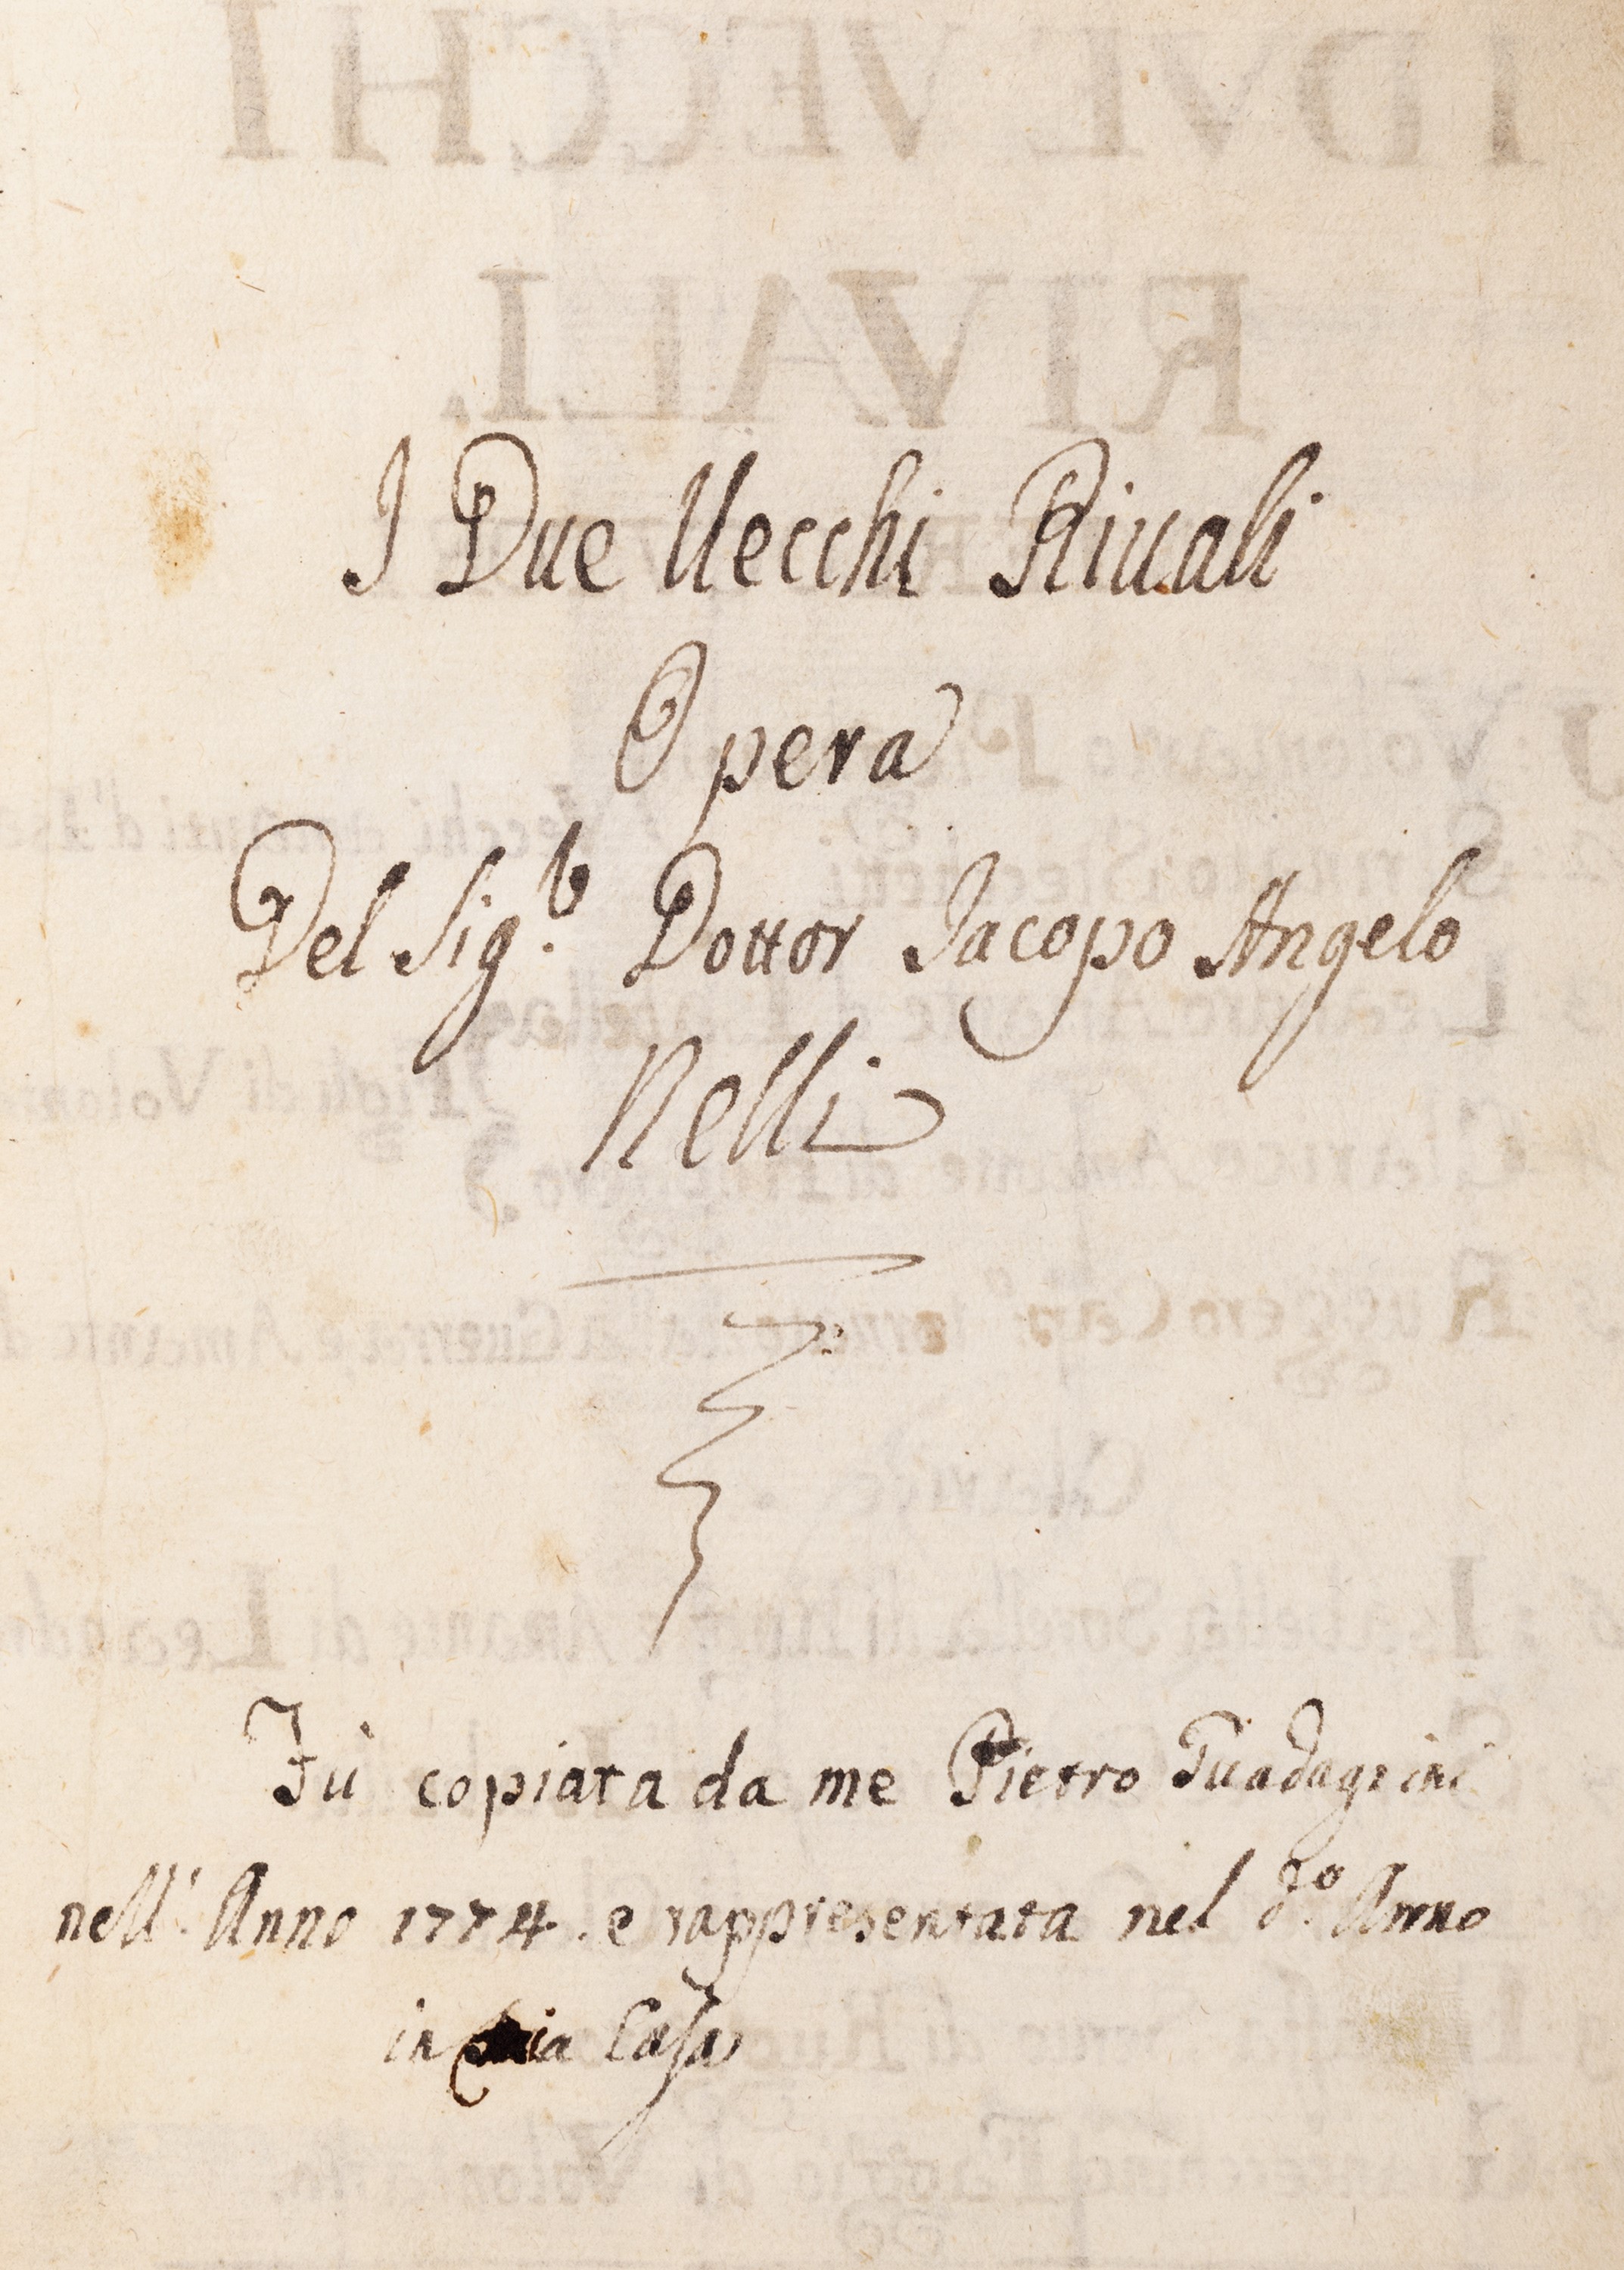 I Due Uecchi Riuali
Opera
Del Sig.r Dottor Jacopo Angelo
Nelli
Fù copiata da me Pietro Guadagnini
nell'Anno 1774. e rappresentata nel do. Anno
in mia Casa
I DVE VECCHI
RIVALI.